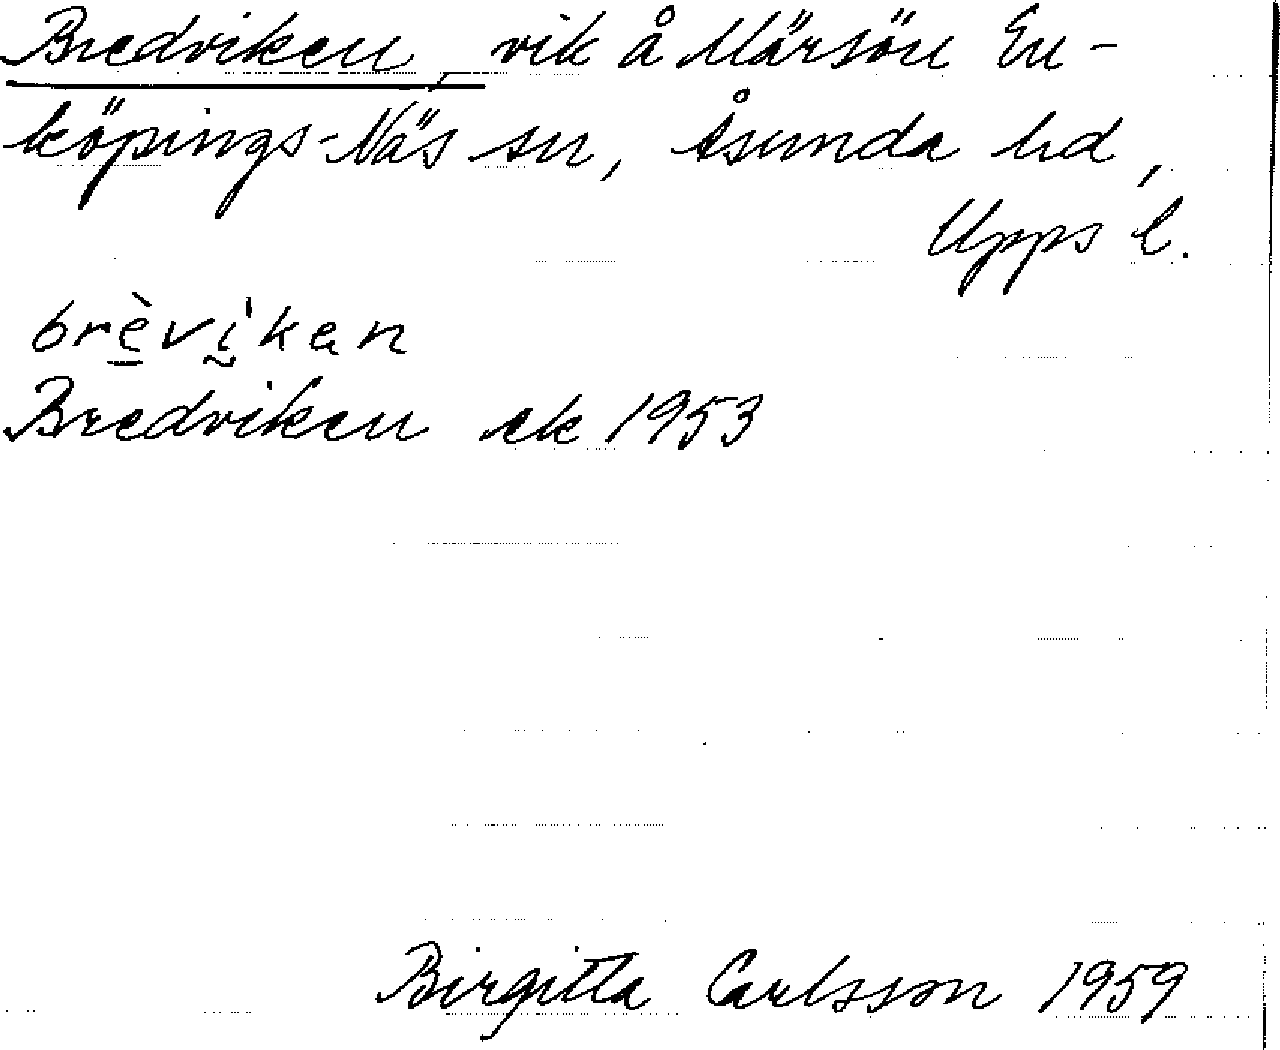 Bredviken, vik å Märsön En-
köpings-Näs sn, Åsunda hd,
Upps l.
brèvḭkan
Bredviken ek 1953
Birgitta Carlsson 1959